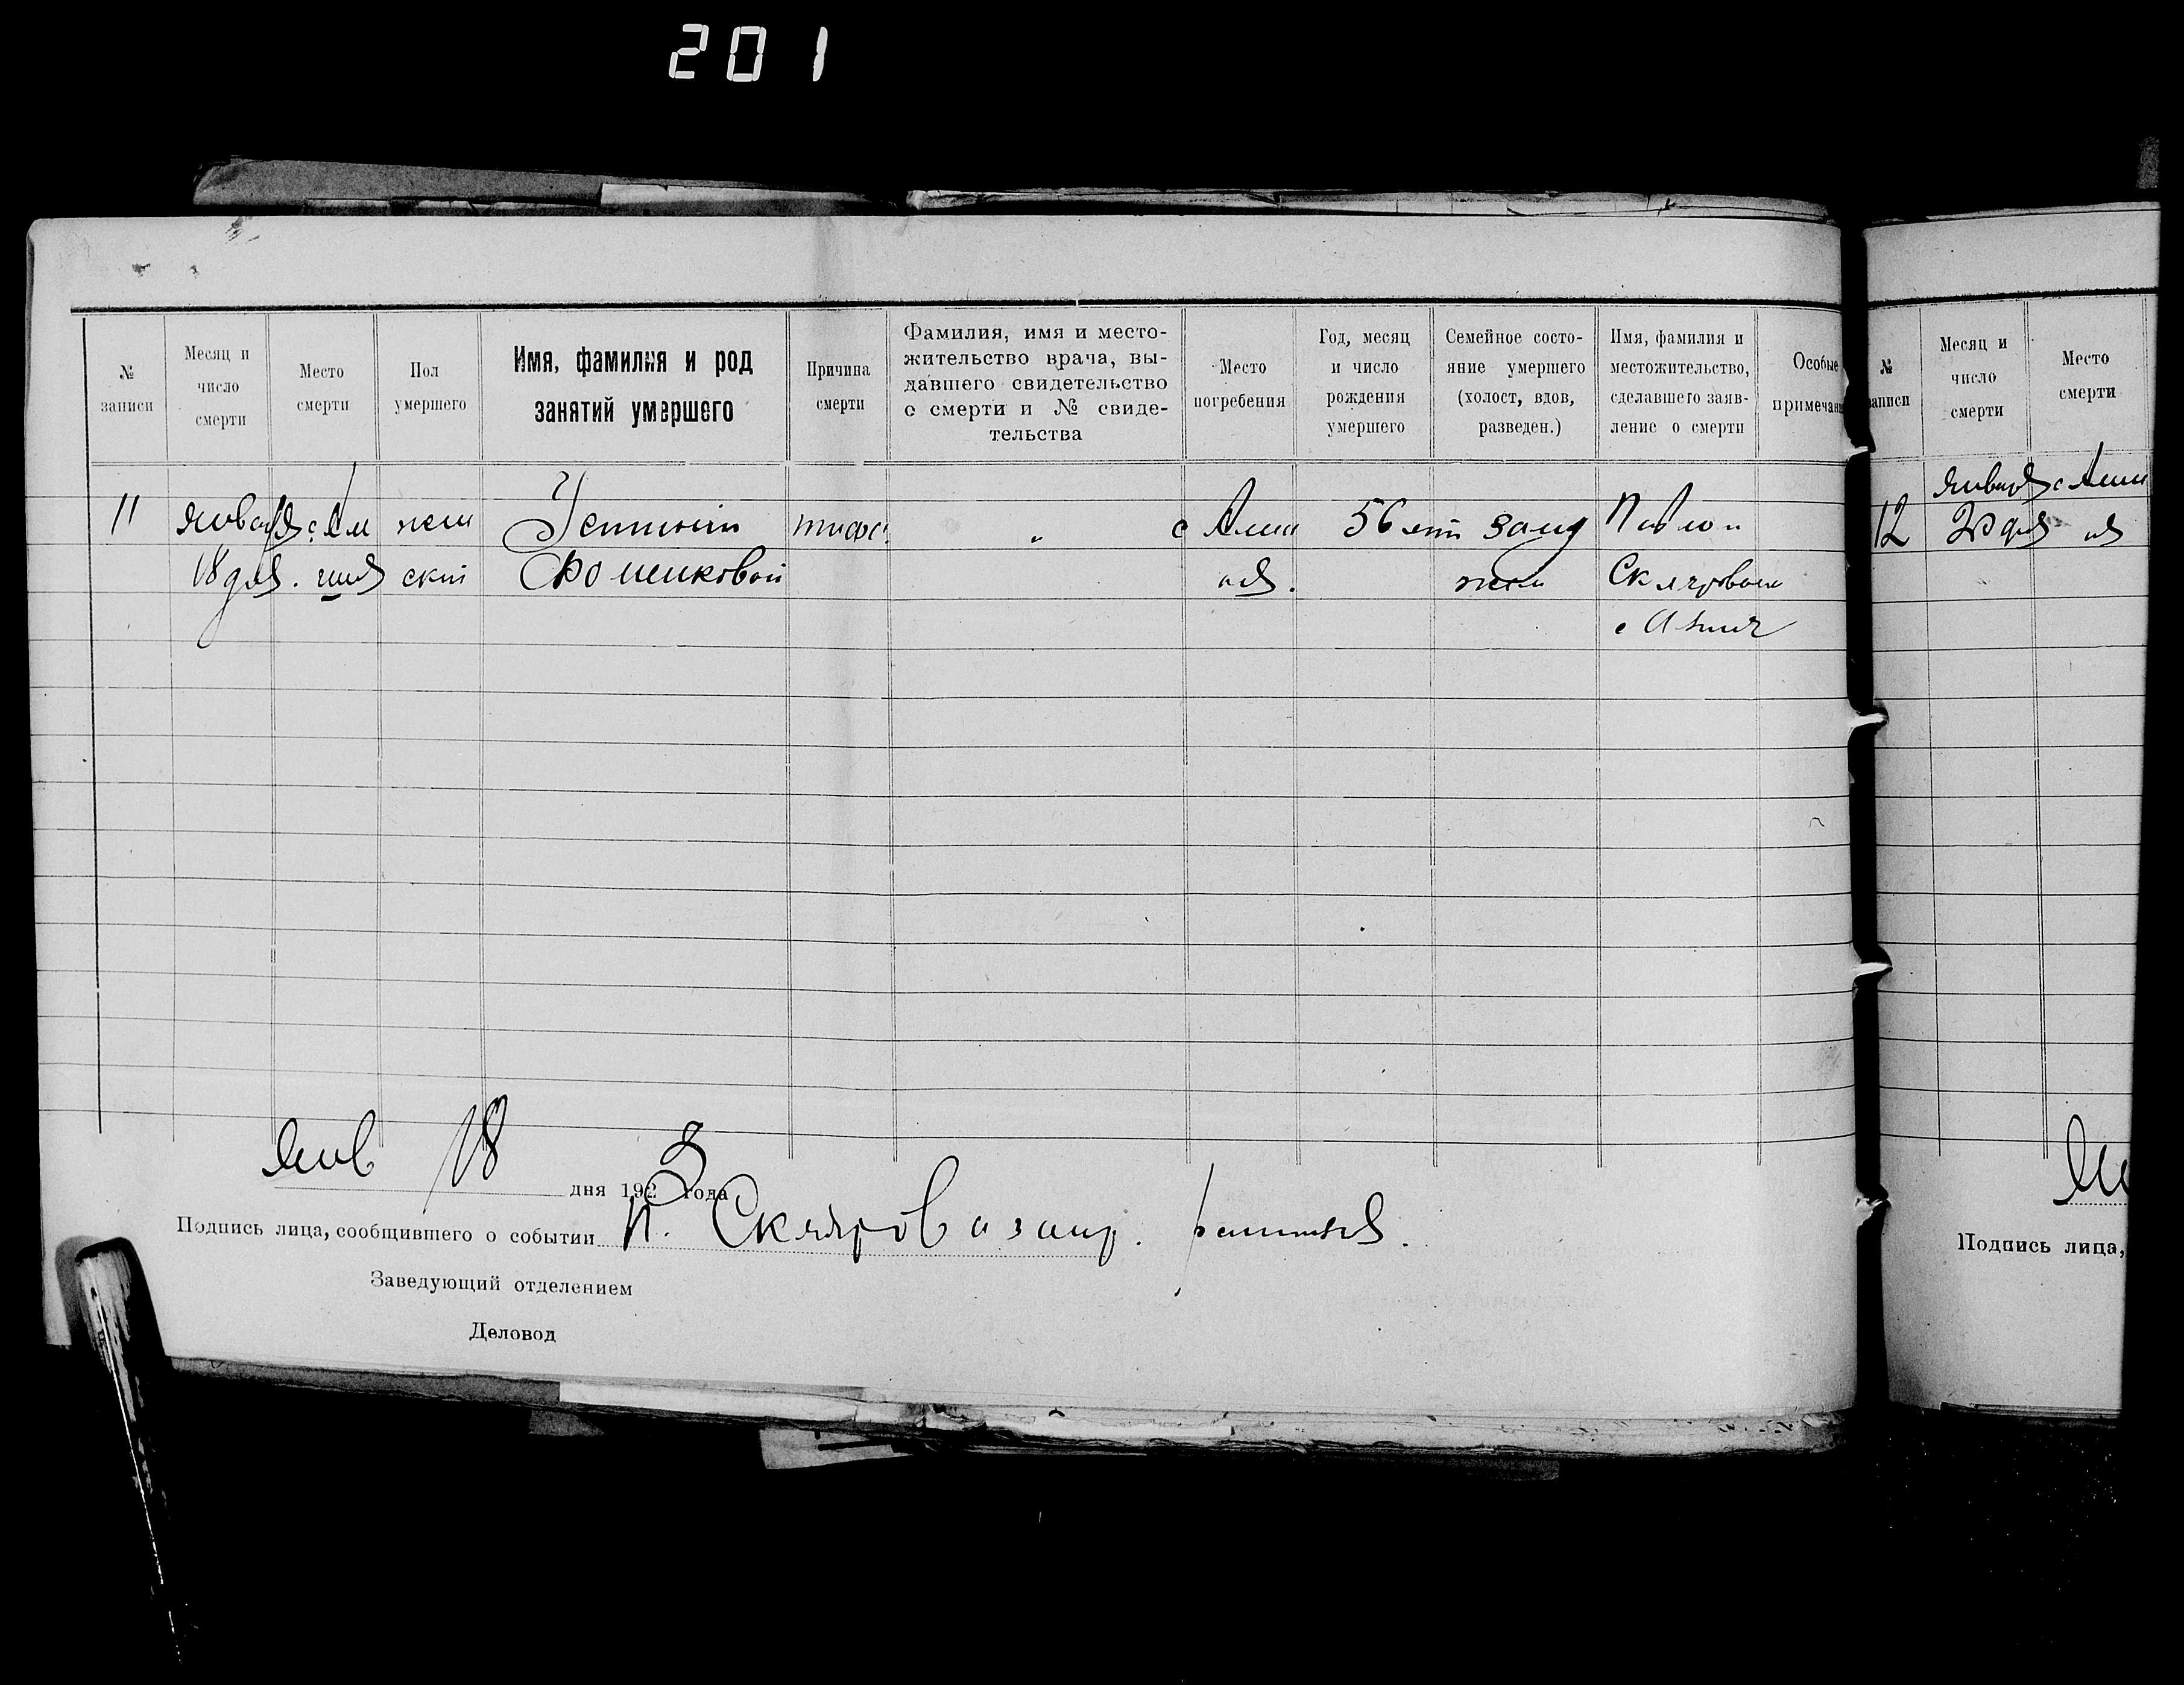 201
№ записи
Месяц и число смерти
Место смерти
Пол умершего
Имя, фамилия и род занятий умершего
Причина смерти
Фамилия, имя и место-
жительство врача, вы-
давшего свидетельство
о смерти и № свиде-
тельства
Место погребения
Год, месяц и число рождения умершего
Семейное состо-
яние умершего
(холост, вдов,
разведен.)
Имя, фамилия и
местожительство,
сделавшего заяв-
ление о смерти
Особые
примечан
11 января жен тиф. " с 56 лет
18 дня. ский Фоменковой Склярова
янв 18 дня 1923 года
Подпись лица, сообщившего о событии П. Скляров
Заведующий отделением
Деловод
№
записи
Месяц и
число
смерти
Место
смерти
января с
12 20 дня
Подпись лица,